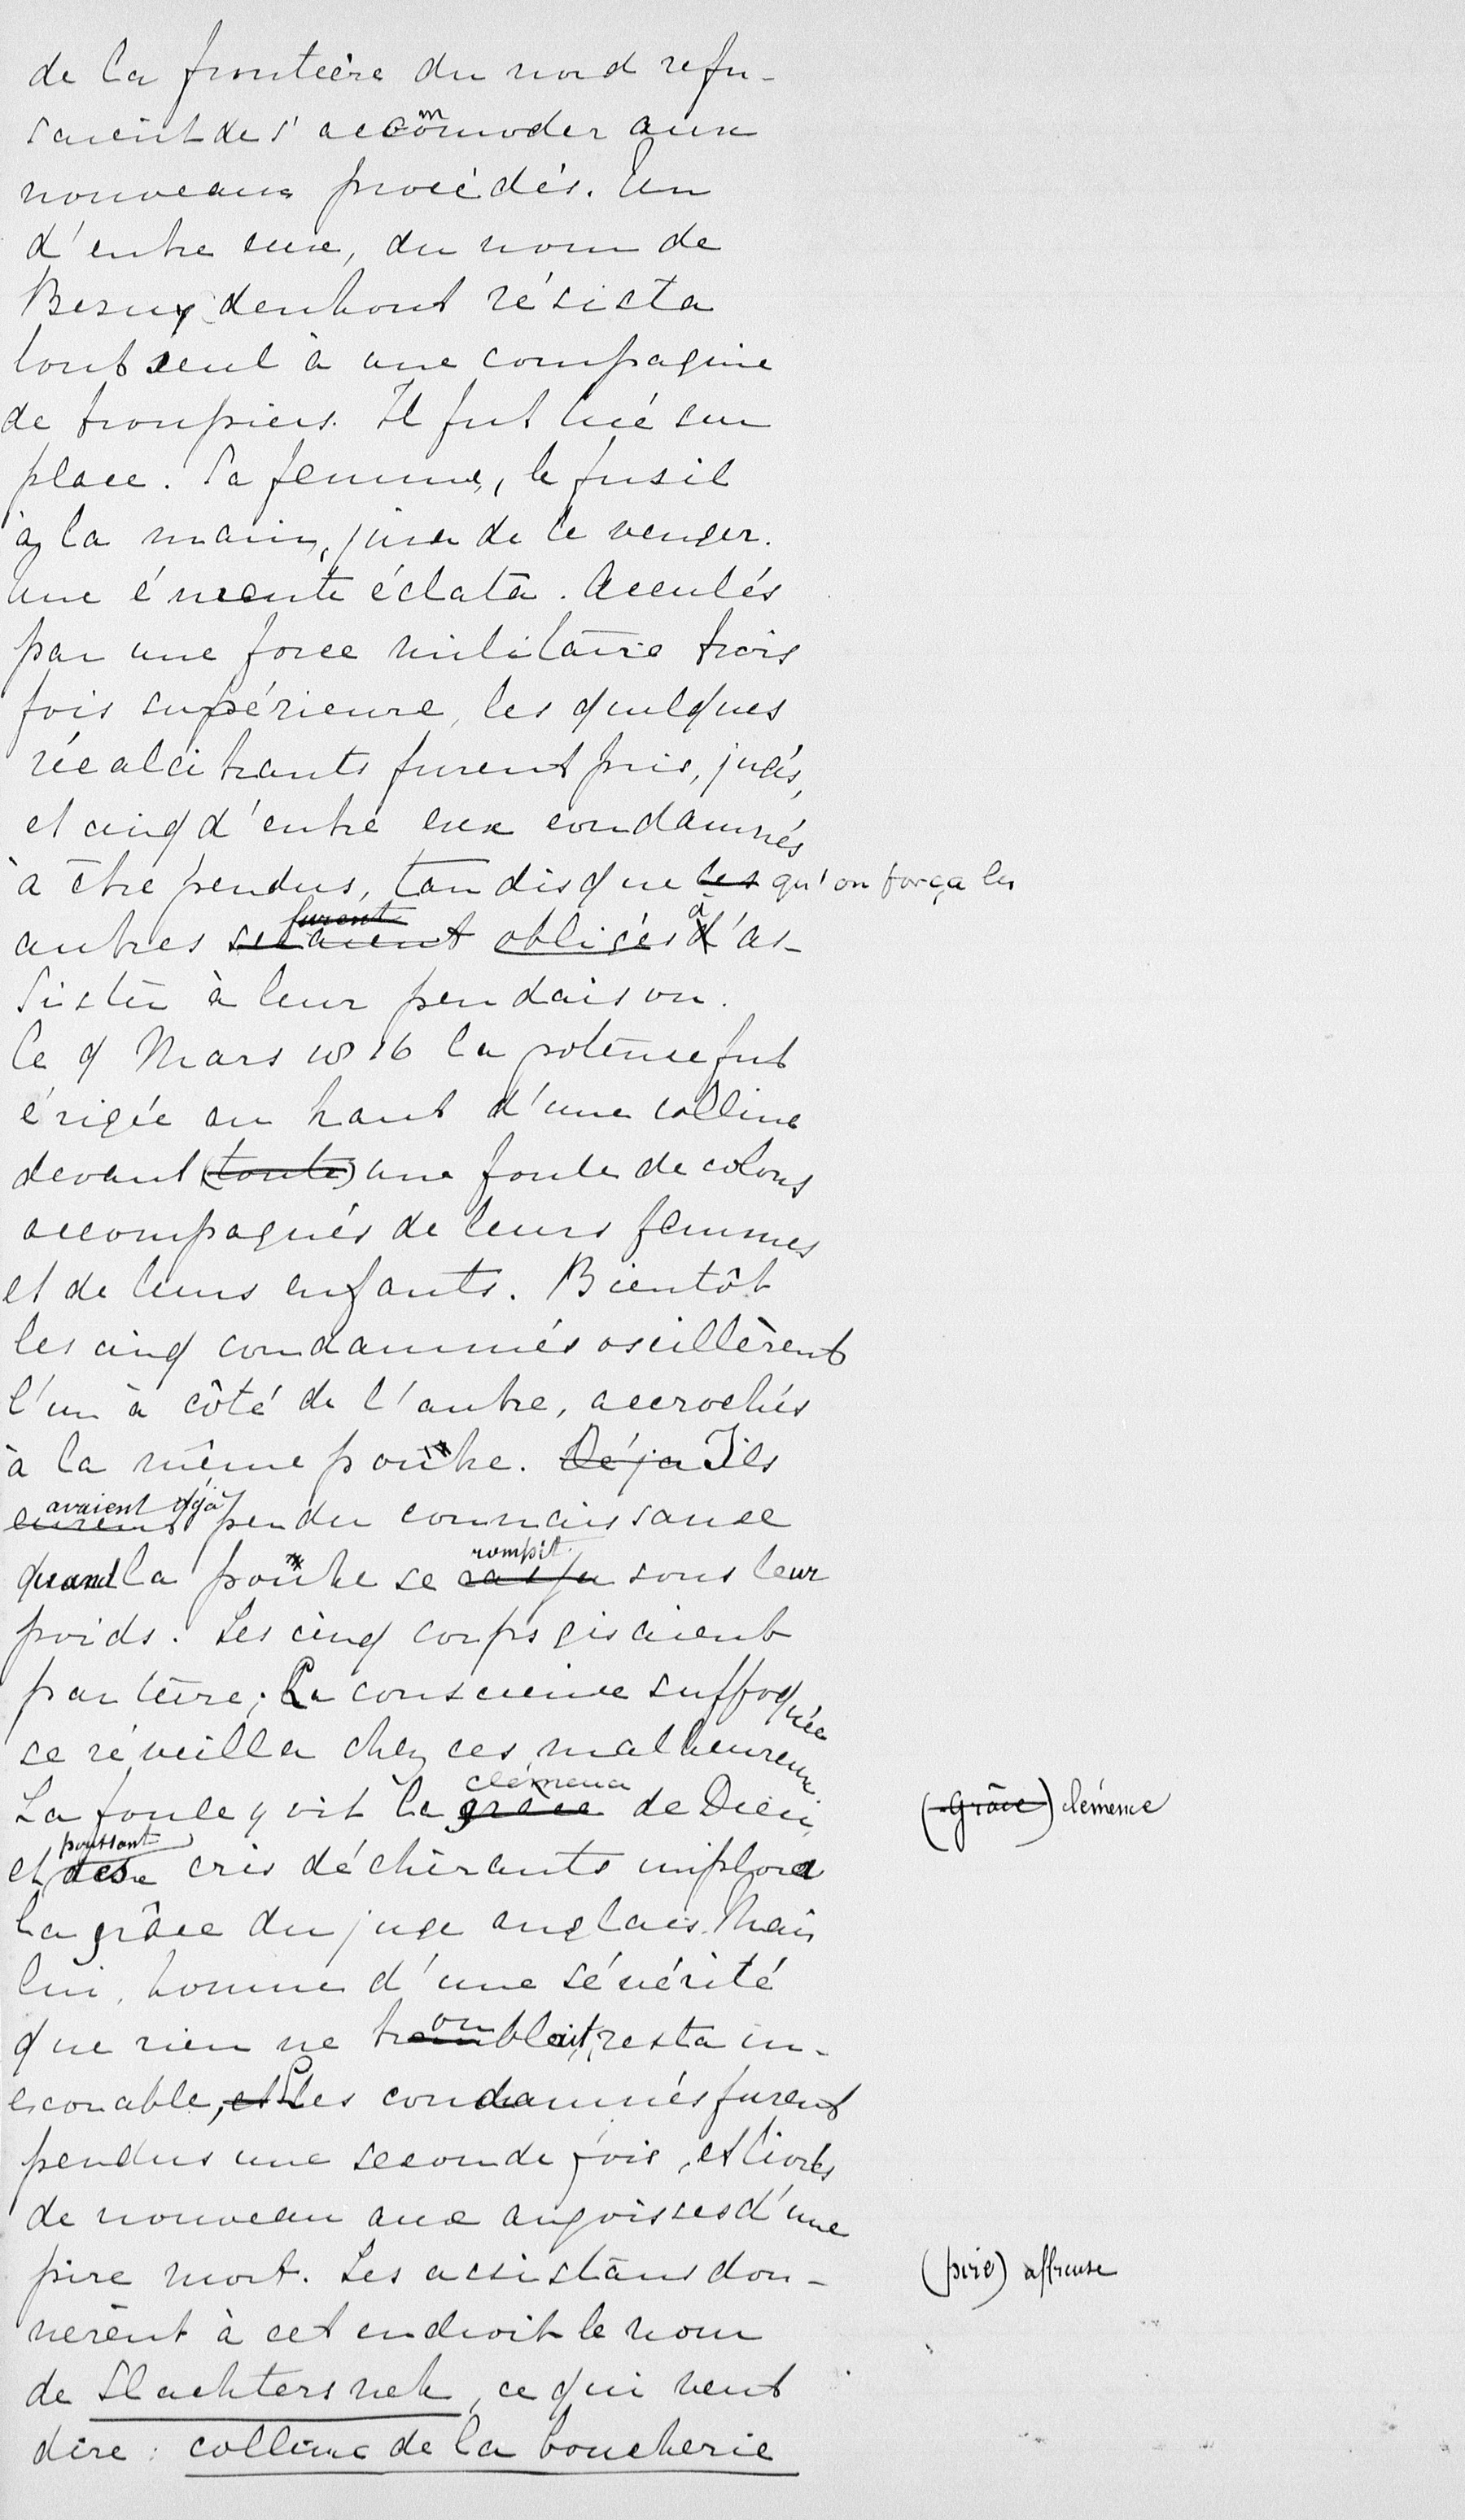 de la frontière du nord refu-
saient de s'accommoder aux
nouveaux procédés. Un
d'entre eux, du nom de
Bezuydenhout résista
tout seul à une compagnie
de troupiers. Il fut tué sur
place. Sa femme, le fusil
à la main, jura de le venger.
Une émeute éclata. Acculés
par une force militaire trois
fois supérieure, les quelques
récalcitrants furent pris, jugés,
et cinq d'entre eux condamnés
à être pendus, tandis que les qu'on força les
autres seraient furent obligés d' à as-
sister à leur pendaison.
Le 9 Mars 1816 la potence fut
érigée au haut d'une colline
devant (toute) une foule de colons
accompagnés de leurs femmes
et de leurs enfants. Bientôt
les cinq condammés oscillèrent
l'un à côté de l'autre, accrochés
à la même poutre. Déja Ils
eurent avaient déjà perdu connaissance
quand la poutre se cassa rompit sous leur
poids. Les cinq corps gisaient
par terre; La conscience suffoquée
se réveilla chez ces malheureux
La foule y vit la grâce clémence de Dieu, (Grâce) clémence
et des poussant cris déchirants implora
la grâce du juge anglais. Mais
lui, homme d'une sévérité
que rien ne troublait, resta in-
exorable, et Les condamnés furent
pendus une seconde fois, et livrés
de nouveau aux angoisses d'une
pire mort. Les assistans don- (pire) affreuse
nèrent à cet endroit le nom
de Slachtersnek, ce qui veut
dire: colline de la boucherie